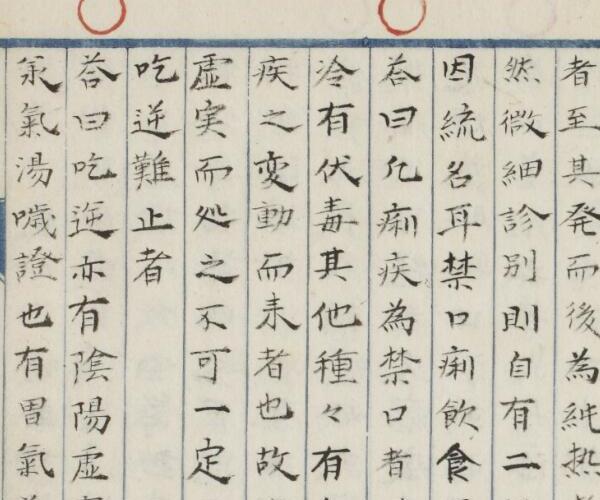 者至其発而後為純热
然微細診別則自有二
因統名耳禁口痢飲食
荅曰凡痢疾為禁口者
冷有伏毒其他種々有
疾之変動而来者也故
虚実而処之不可一定
吃逆難止者
荅曰吃逆亦有陰陽虚
氣湯噦證也有胃氣